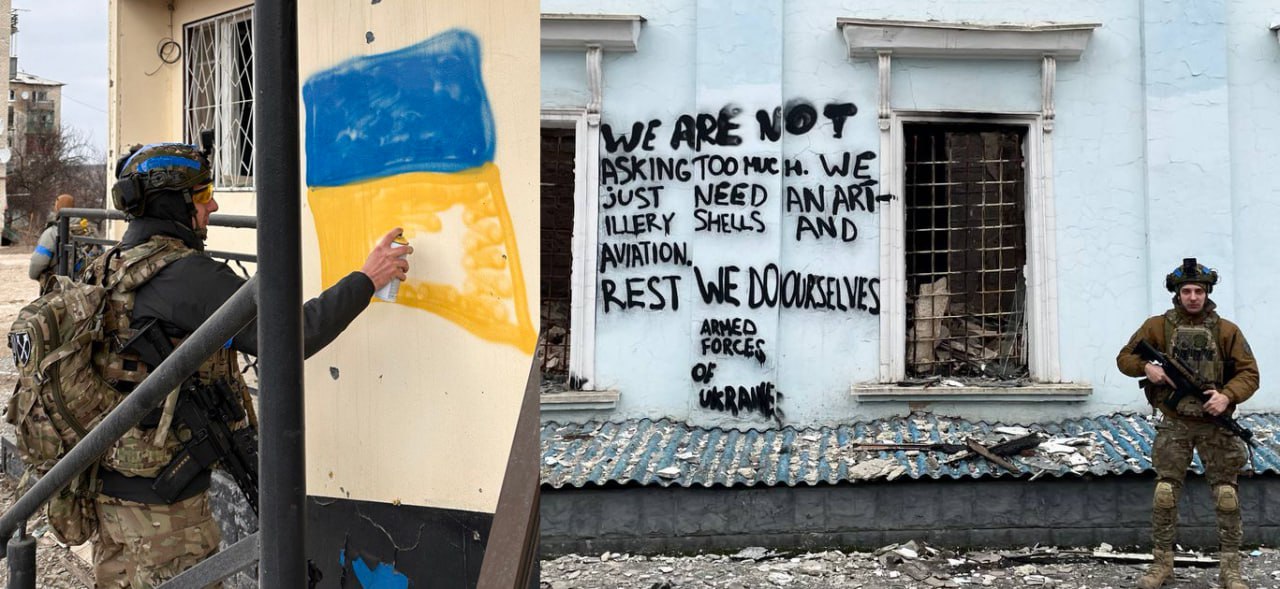 WE ARE NOT
ASKING TOO MUCH. WE
JUST NEED AN ART-
ILLERY SHELLS AND
AVIATION.
REST WE DO OURSELVES
ARMED
FORCES
OF
UKRAINE